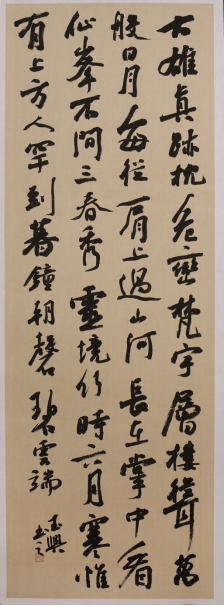 大雄真跡枕危巒梵宇層樓聳萬
般日月每從肩上過山河長在掌中看
仙峯不間三春秀靈境何時六月寒惟
有上方人罕到暮鐘朝磬碧雲端
書之